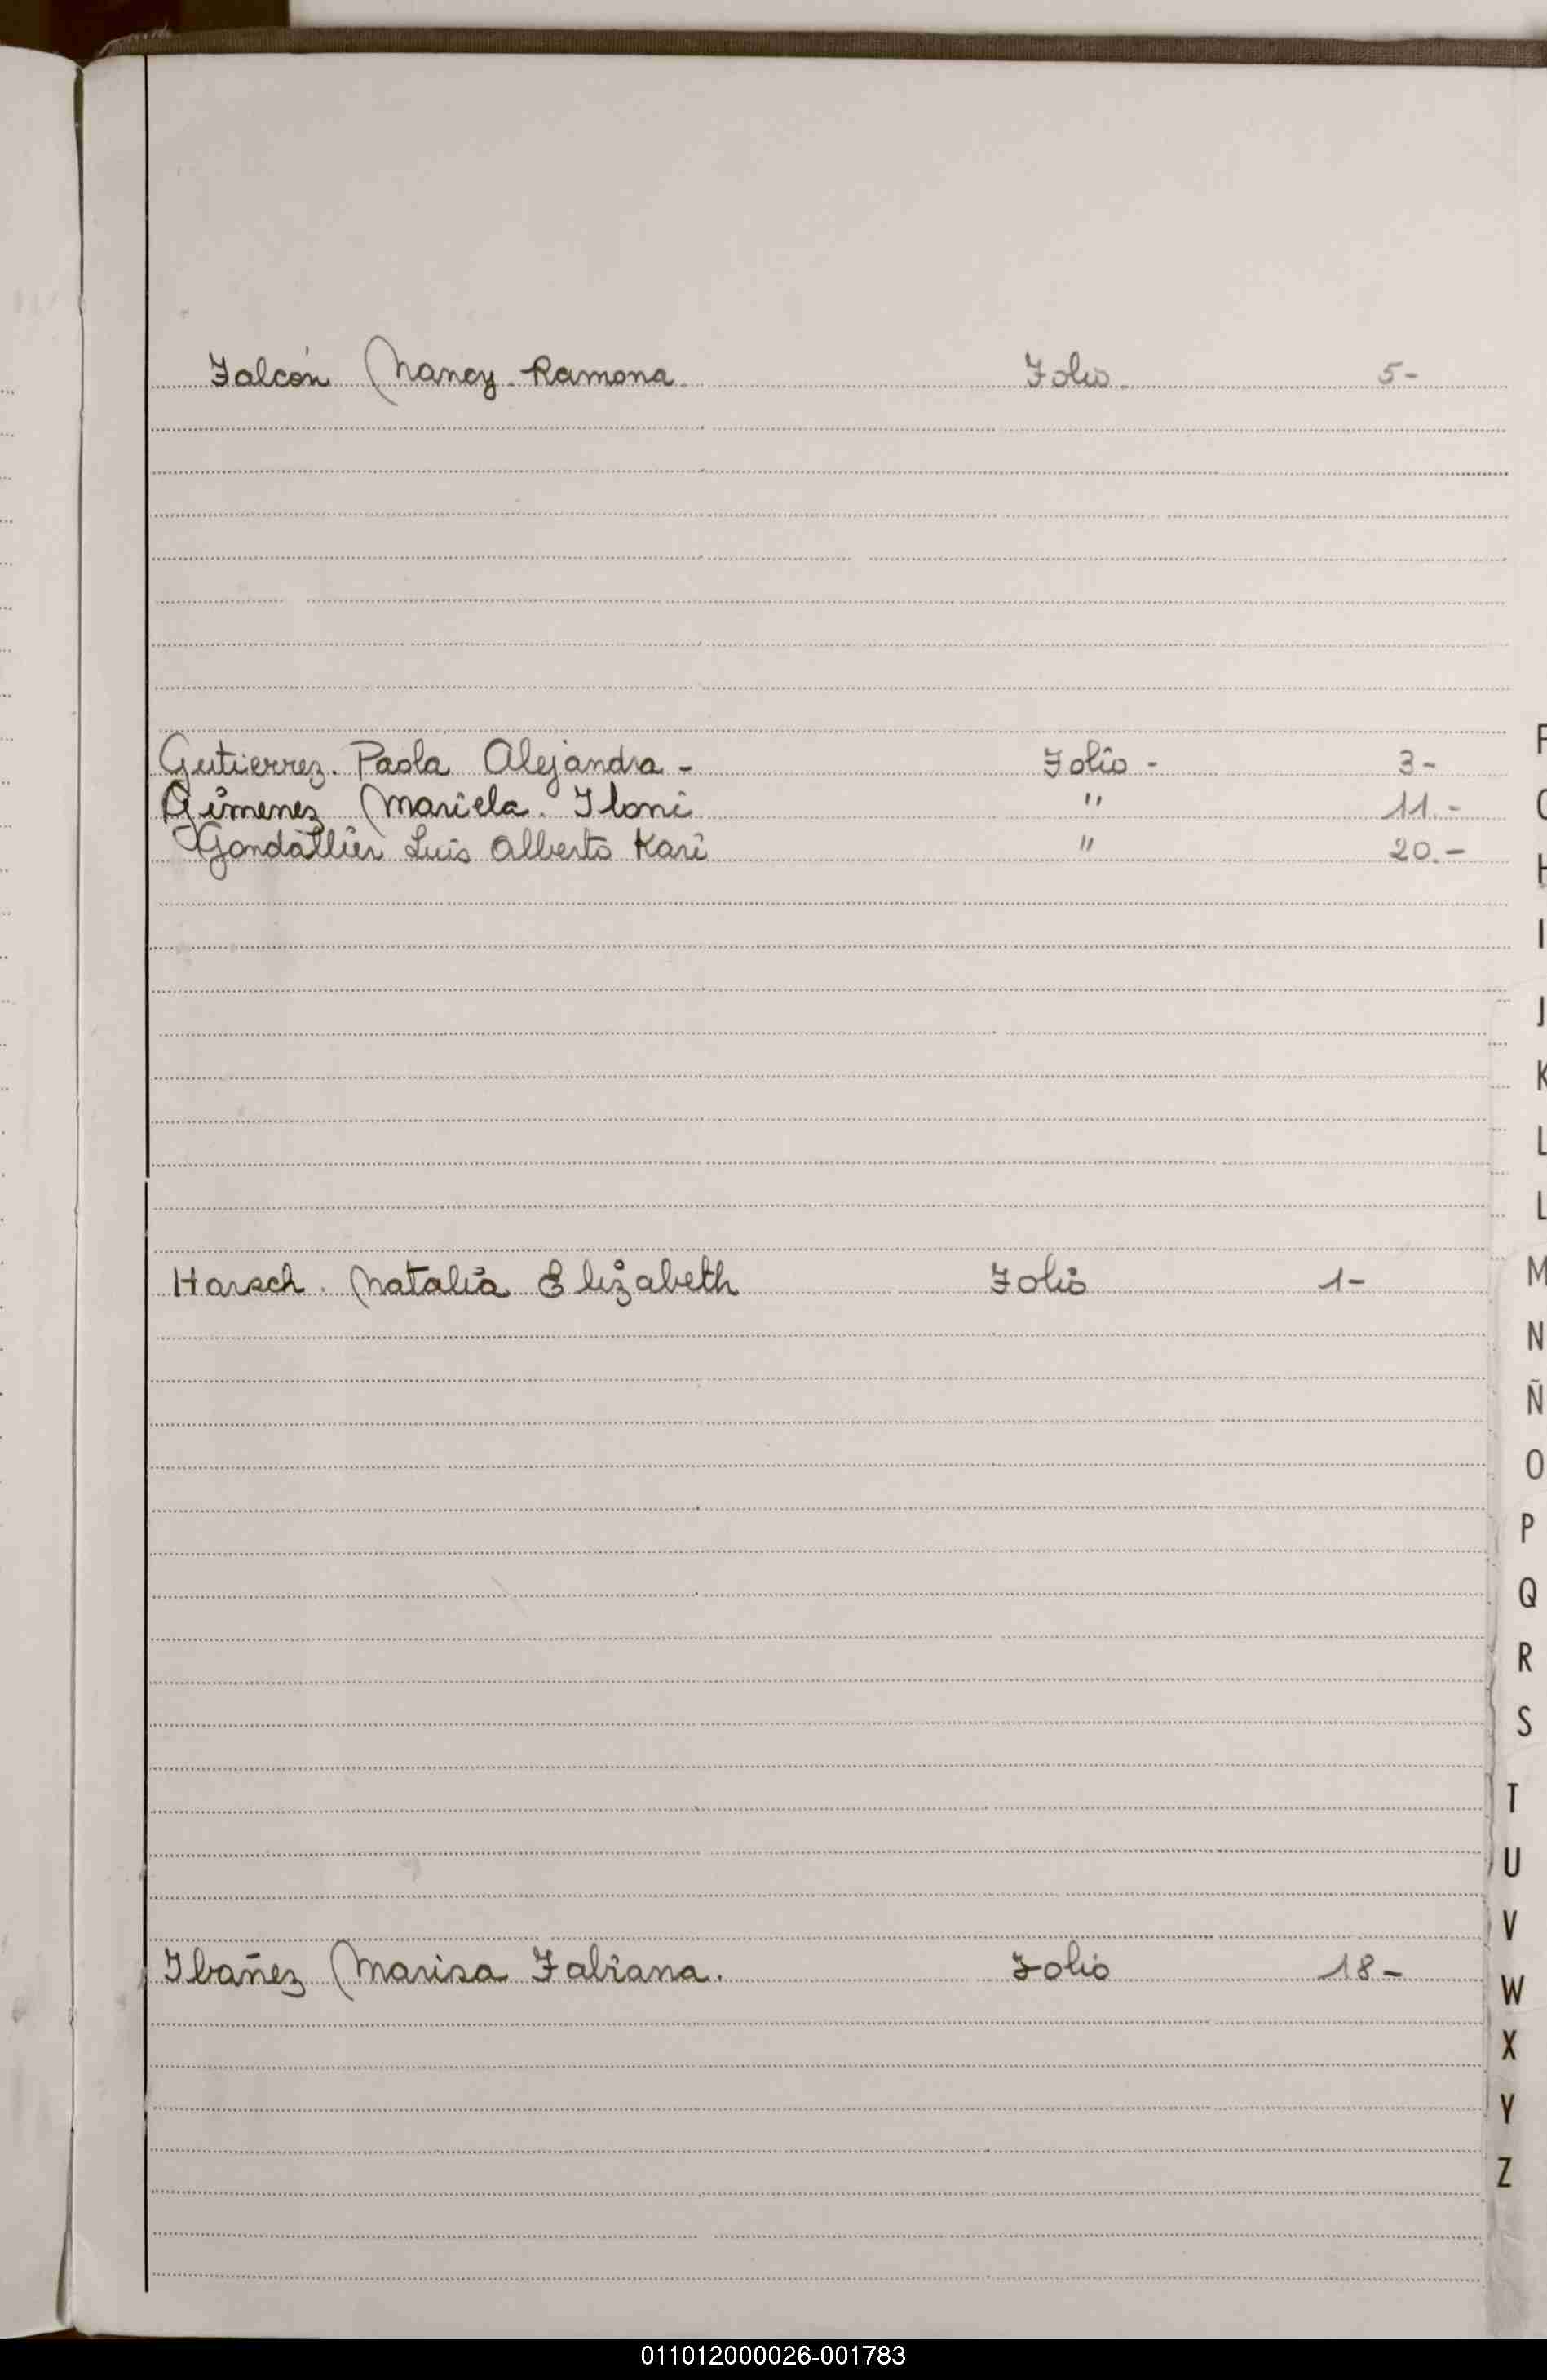 Falcón Nancy Ramona. Folio. 5-
Gutierrez. Paola Alejandra - Folio - 3-
Gimenez Mariela. Iloni " 11.-
Gondallier Luis Alberto Kari " 20.-
Harsch. Natalia Elizabeth Folio 1-
Ibañez Marisa Fabiana. Folio 18-
F
G
H
I
J
K
L
L
M
N
Ñ
O
P
Q
R
S
T
U
V
W
X
Y
Z
011012000026-001783